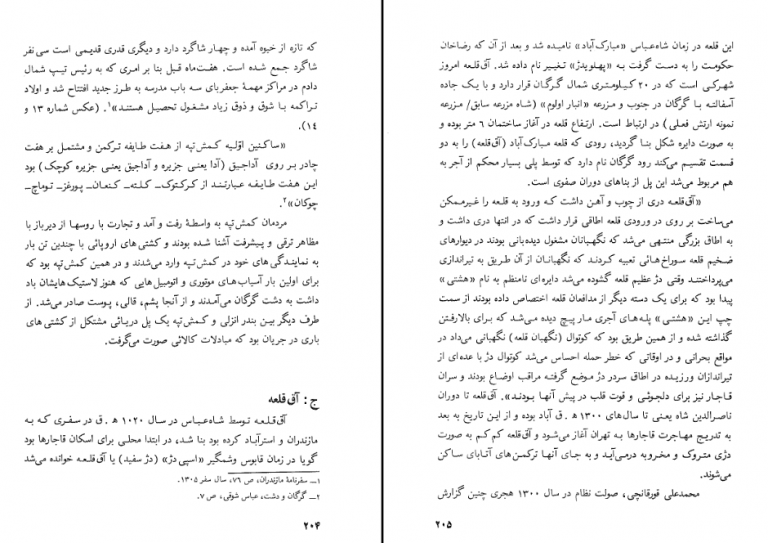 که تازه از خیوه آمده و چهار شاگرد دارد و دیگری قدری قدیمی است سی نفر
شاگرد جمع شده است. هفت‌ماه قبل بنا بر امری که به رئیس تیپ شمال
دادم در مراکز مهمهٔ جعفربای سه باب مدرسه به طرز جدید افتتاح شد و اولاد
تراکمه با شوق و ذوق زیاد مشغول تحصیل هستند»۱. (عکس شماره ۱۳ و
۱۴).
«ساکنین اوّلیه کمش‌تپه از هفت طایفه ترکمن و مشتمل بر هفت
چادر بر روی آداجیق (آدا یعنی جزیره و آداجیق یعنی جزیره کوچک) بود
این هفت طایفه عبارتند از کرکتوک- کلته- کنعان- پورغز- توماچ-
چوکان»۲.
مردمان کمش‌تپه به واسطهٔ رفت و آمد و تجارت با روسها از دیرباز با
مظاهر ترقی و پیشرفت آشنا شده بودند و کشتی‌های اروپائی با چندین تن بار
به نمایندگی‌های خود در کمش‌تپه وارد می‌شدند و در همین کمش‌تپه بود که
برای اولین بار آسیاب‌های موتوری و اتومبیل‌هایی که هنوز لاستیک‌هایشان باد
داشت به دشت گرگان می‌آمدند و از آنجا پشم، قالی، پوست صادر می‌شد. از
طرف دیگر بین بندر انزلی و کمش‌تپه یک پل دریائی مشتکل از کشتی‌های
باری در جریان بود که مبادلات کالائی صورت می‌گرفت.
ج: آق‌قلعه
آق‌قلعه توسط شاه‌عباس در سال ۱۰۲۰ ه‍ . ق در سفری که به
مازندران و استرآباد کرده بود بنا شد، در ابتدا محلی برای اسکان قاجارها بود
گویا در زمان قابوس وشمگیر «اسپی دژ» (دژ سفید) یا آق‌قلعه خوانده می‌شد
۱- سفرنامهٔ مازندران، ص ۷۶، سال سفر ۱۳۰۵.
۲- گرگان و دشت، عباس شوقی، ص ۷.
۲۰۴
این قلعه در زمان شاه‌عباس «مبارک‌آباد» نامیده شد و بعد از آن که رضاخان
حکومت را به دست گرفت به «پهلویدژ» تغییر نام داده شد. آق‌قلعه امروز
شهرکی است که در ۲۰ کیلومتری شمال گرگان قرار دارد و با یک جاده
آسفالته با گرگان در جنوب و مزرعه «انبار اولوم» (شاه مزرعه سابق/ مزرعه
نمونه ارتش فعلی) در ارتباط است. ارتفاع قلعه در آغاز ساختمان ۶ متر بوده و
به صورت دایره شکل بنا گردید، رودی که قلعه مبارک‌آباد (آق‌قلعه) را به دو
قسمت تقسیم می‌کند رود گرگان نام دارد که توسط پلی بسیار محکم از آجر به
هم مربوط می‌شد این پل از بناهای دوران صفوی است.
«آق‌قلعه دری از چوب و آهن داشت که ورود به قلعه را غیرممکن
می‌ساخت بر روی در ورودی قلعه اطاقی قرار داشت که در انتها دری داشت و
به اطاق بزرگی منتهی می‌شد که نگهبانان مشغول دیده‌بانی بودند در دیوارهای
ضخیم قلعه سوراخ‌هائی تعبیه کردند که نگهبانان از آن طریق به تیراندازی
می‌پرداختند وقتی دژ عظیم قلعه گشوده می‌شد دایره‌ای نامنظم به نام «هشتی»
پیدا بود که برای یک دسته دیگر از مدافعان قلعه اختصاص داده بودند از سمت
چپ این «هشتی» پله‌های آجری مار پیچ دیده می‌شد که برای بالارفتن
گذاشته شده و از همین طریق بود که کوتوال (نگهبان قلعه) نگهبانی می‌داد در
مواقع بحرانی و در اوقاتی که خطر حمله احساس می‌شد کوتوال دژ با عده‌ای از
تیراندازان ورزیده در اطاق سردر دژ موضع گرفته مراقب اوضاع بودند و سران
قاجار نیز برای دلجوئی و قوت قلب در پیش آنها بودند». آق‌قلعه تا دوران
ناصرالدین شاه یعنی تا سال‌های ۱۳۰۰ ه‍ . ق آباد بوده و از این تاریخ به بعد
به تدریج مهاجرت قاجارها به تهران آغاز می‌شود و آق‌قلعه کم کم به صورت
دژی متروک و مخروبه درمی‌آید و به جای آنها ترکمن‌های آتابای ساکن
می‌شوند.
محمدعلی قورقانچی، صولت نظام در سال ۱۳۰۰ هجری چنین گزارش
۲۰۵